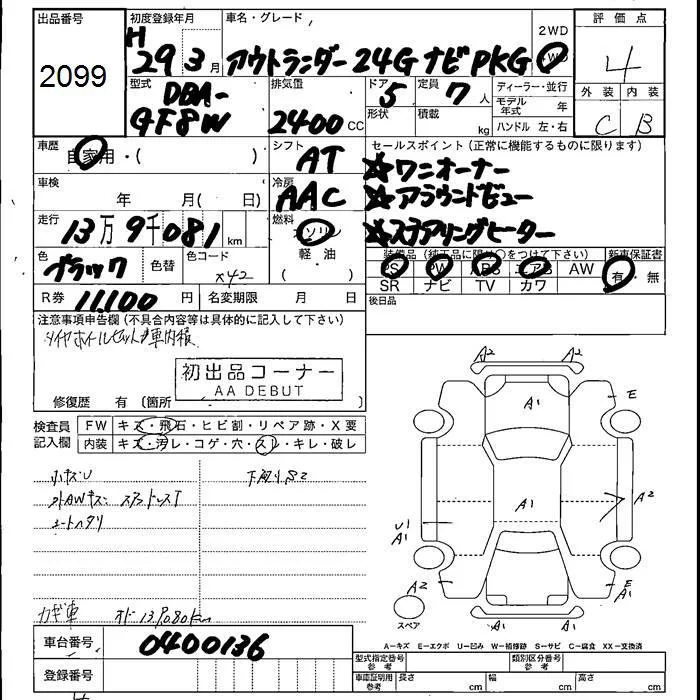 出品番号
2099
初度登録年月
H29 3月
車名・グレード
アウトランダー 24G ナビPKG
2WD
評価点
4
外装 内装
C B
型式
DBA-
GF8W
排気量
2400 CC
ドア
5
形状
定員
7人
積載
kg
ディーラー・並行
モデル年式 年
ハンドル 左・右
車歴
自家用・( )
シフト
AT
セールスポイント(正常に機能するものに限ります)
☆ワンオーナー
☆アラウンドビュー
☆ステアリングヒーター
車検
年 月( 日)
冷房
AAC
走行
13万9千081 km
燃料
ガソリン
軽・油
色
ブラック
色替
色コード
X42
装備品(純正品に限り○をつけて下さい)
新車保証書
PS PW ABS エアB AW
SR ナビ TV カワ
有・無
R券
11,100 円
名変期限 月 日
後日品
注意事項申告欄(不具合内容等は具体的に記入して下さい)
タイヤホイールセット車内積
初出品コーナー
AA DEBUT
修復歴 有(箇所
検査員
記入欄
FW キズ・飛石・ヒビ割・リペア跡・X要
内装 キズ・汚レ・コゲ・穴・スレ・キレ・破レ
小キズU
下廻りS2
外AWキズ スタッドレスT
シートヘタリ
カギ車 オド139,080km
A2 A2
A1
E
A1
A2
U1
A1
A2
A1
E
A1
A2 A2
スペア
A-キズ E-エクボ U-凹み W-補修跡 S-サビ C-腐食 XX-交換済
車台番号
0400136
登録番号
型式指定番号
参考
類別区分番号
参考
車庫証明用
参考
長さ cm 幅 cm 高さ cm